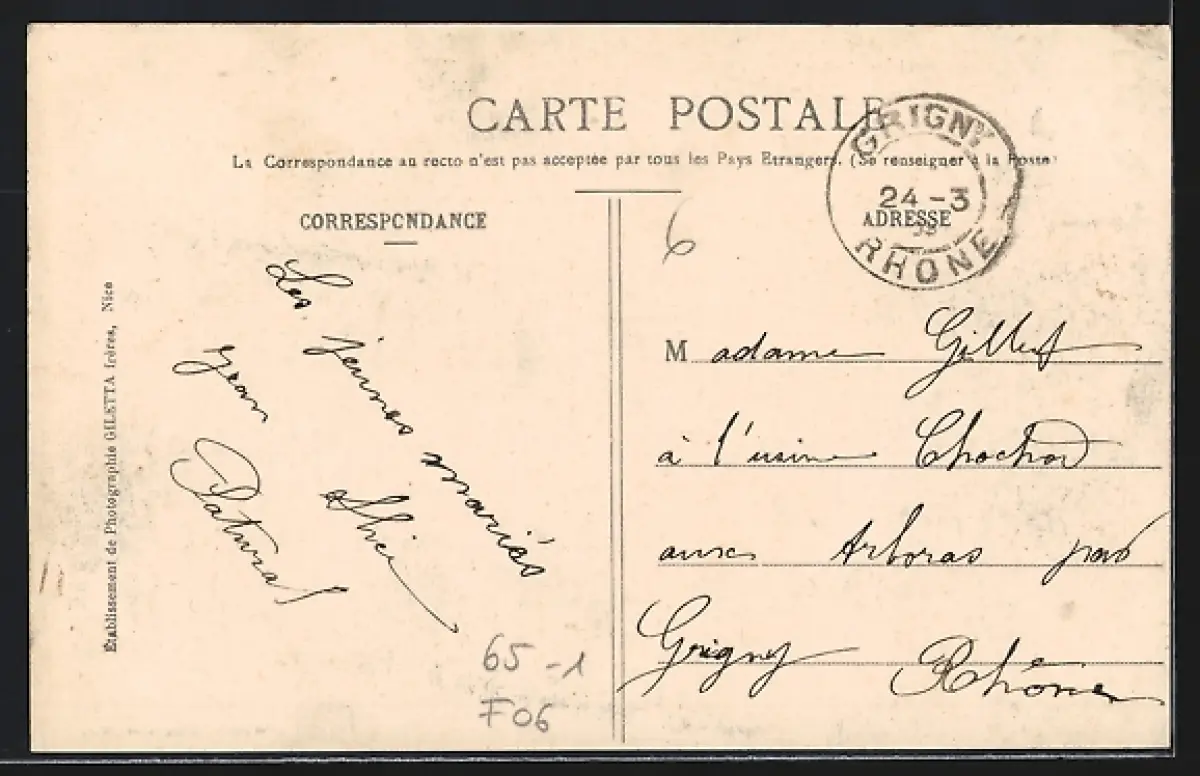 CARTE POSTALE
La Correspondance au recto n'est pas acceptée par tous les Pays Etrangers. (Se renseigner à la Poste)
CORRESPONDANCE
ADRESSE
GRIGNY
24 - 3
RHONE
6
Établissement de Photographie GILETTA frères, Nice
Les jeunes mariés
Jean
Patural
Madame Gillet
à l'usine
aux Arboras par
Grigny Rhône
65 - 1
F06